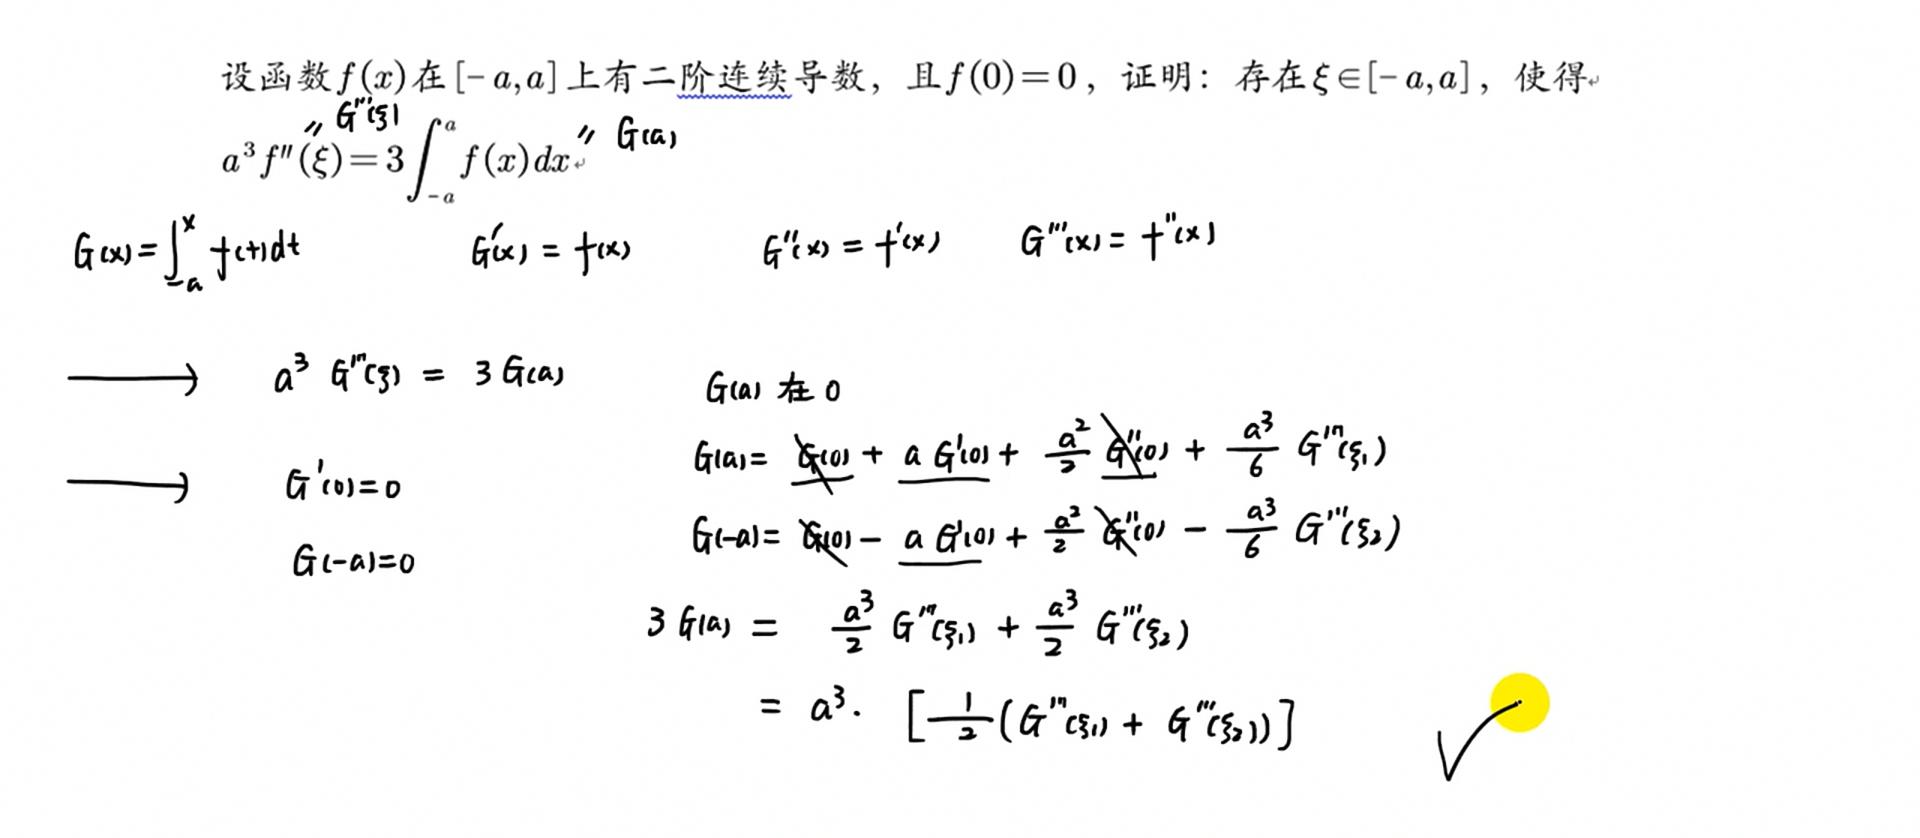 设函数f(x)在[-a,a]上有二阶连续导数，且f(0)=0，证明：存在ξ∈[-a,a]，使得
" G'''(ξ)
a³f''(ξ)=3∫_{-a}^{a}f(x)dx " G(a)
G(x)=∫_{-a}^{x}f(t)dt G'(x)=f(x) G''(x)=f'(x) G'''(x)=f''(x)
→ a³ G'''(ξ) = 3 G(a)
G(a) 在 0
G(a)= G(0) + a G'(0) + a²/2 G''(0) + a³/6 G'''(ξ₁)
→ G'(0)=0
G(-a)= G(0) - a G'(0) + a²/2 G''(0) - a³/6 G'''(ξ₂)
G(-a)=0
3 G(a) = a³/2 G'''(ξ₁) + a³/2 G'''(ξ₂)
= a³· [1/2(G'''(ξ₁) + G'''(ξ₂))]